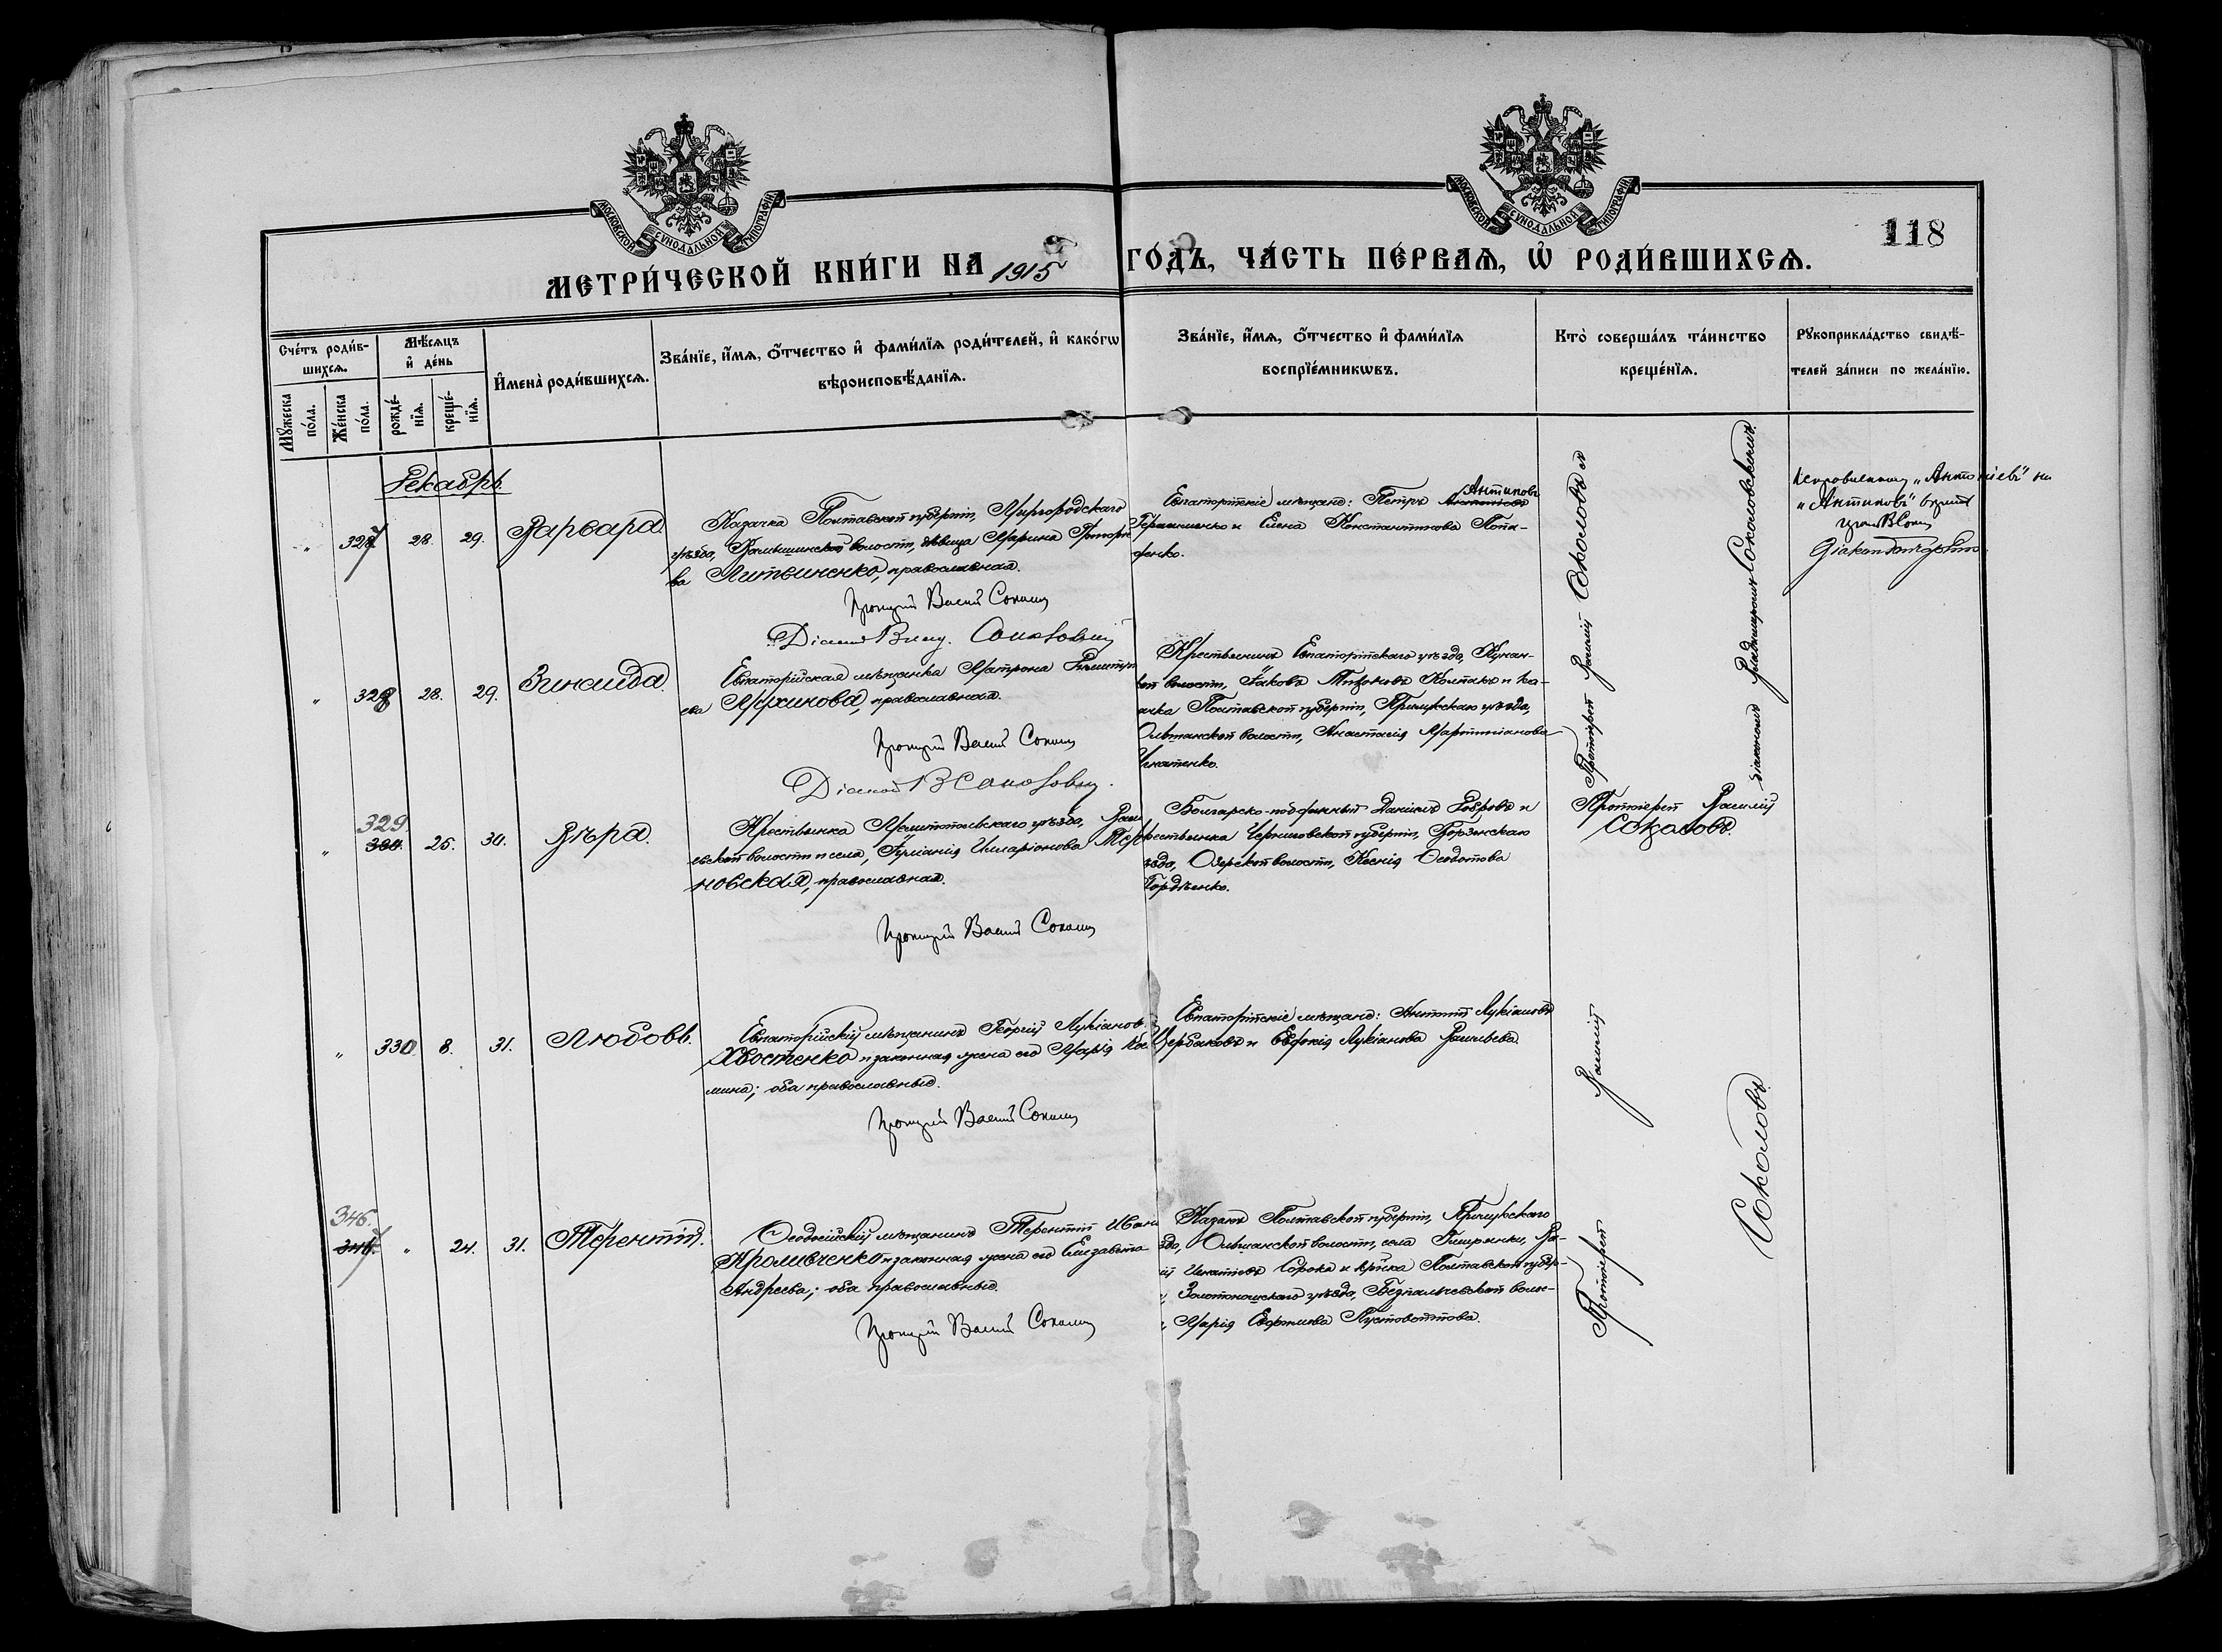 118
МЕТРИ́ЧЕСКОЙ КНИ́ГИ НА 1915 ГО́ДЪ, ЧА́СТЬ ПЕ́РВАѦ, Ѡ҆ РОДИ́ВШИХСѦ.
Сче́тъ роди́в-
шихсѧ.
Мꙋ́жеска по́ла.
Же́нска по́ла.
Мѣ́сѧцъ и҆ де́нь
рожде́-
нїѧ.
креще́-
нїѧ.
И҆мена̀ роди́вшихсѧ.
Зва́нїе, и҆́мѧ, ѻ҆́тчество и҆ фами́лїѧ роди́телей, и҆ како́гѡ
вѣроисповѣ́данїѧ.
Зва́нїе, и҆́мѧ, ѻ҆́тчество и҆ фами́лїѧ
воспрїе́мникѡвъ.
Кто̀ соверша́лъ та́инство
креще́нїѧ.
Рꙋкоприкла́дство свидѣ́-
телей за́писи по жела́нїю.
Декабрь.
" 327 28. 29. Варвара.
Казачка Полтавской губерніи, Миргородскаго
уѣзда, волости, дѣвица Марина Григорье
ва Литвиненко, православная.
Протоіерей Василій Соколовъ
Діаконъ Влад. Соколовскій
Евпаторійскіе мѣщане: Петръ Антиповъ
Герасименко и Елена Константинова Пота-
пенко.
Протоіерей Василій Соколовъ и
діаконъ Владиміръ Соколовскій.
Исправленному „Антоніевъ" на
„Антиповъ" вѣрить
" 328 28. 29. Зинаида.
Евпаторійская мѣщанка Матрона Димитрі
ева Мухинова, православная.
Протоіерей Василій Соколовъ
Діаконъ В Соколовскій.
Крестьянинъ Евпаторійскаго уѣзда, Кунан-
ской волости, Іаковъ Тихоновъ Колпакъ и ка-
зачка Полтавской губерніи, Прилукскаго уѣзда,
Ольшанской волости, Анастасія Мартиніанова
Игнатенко.
329.
" 330. 25. 30. Вѣра.
Крестьянка Мелитопольскаго уѣзда, Васи
льевской волости и села, Іуліанія Иларіонова Тер
новская, православная.
Протоіерей Василій Соколовъ
Болгарско-подданный Даніилъ Бобровъ и
крестьянка Черниговской губерніи, Борзенскаго
уѣзда, Озерской волости, Ксенія Ѳеодотова
Гордѣенко.
Протоіерей Василій
Соколовъ.
" 330. 8. 31. Любовь.
Евпаторійскій мѣщанинъ Георгій Лукіановъ
Хвостенко и законная жена его Марія Кос
мина; оба православные.
Протоіерей Василій Соколовъ
Евпаторійскіе мѣщане: Антоній Лукіановъ
Щербаковъ и Евдокія Лукіанова Васильева.
Протоіерей Василій
Соколовъ.
346.
" 24. 31. Терентій.
Ѳеодосійскій мѣщанинъ Терентій Иван
Кроливченко и законная жена его Елизавета
Андреева; оба православные.
Протоіерей Василій Соколовъ
Казакъ Полтавской губерніи, Прилукскаго
уѣзда, Ольшанской волости, села Гмирянки, Ва-
сілій Игнатіевъ Сорока и Полтавской губер-
ніи, Золотоношскаго уѣзда, Безпальчевской волос-
ти, Марія Евфимова Пустовойтова.